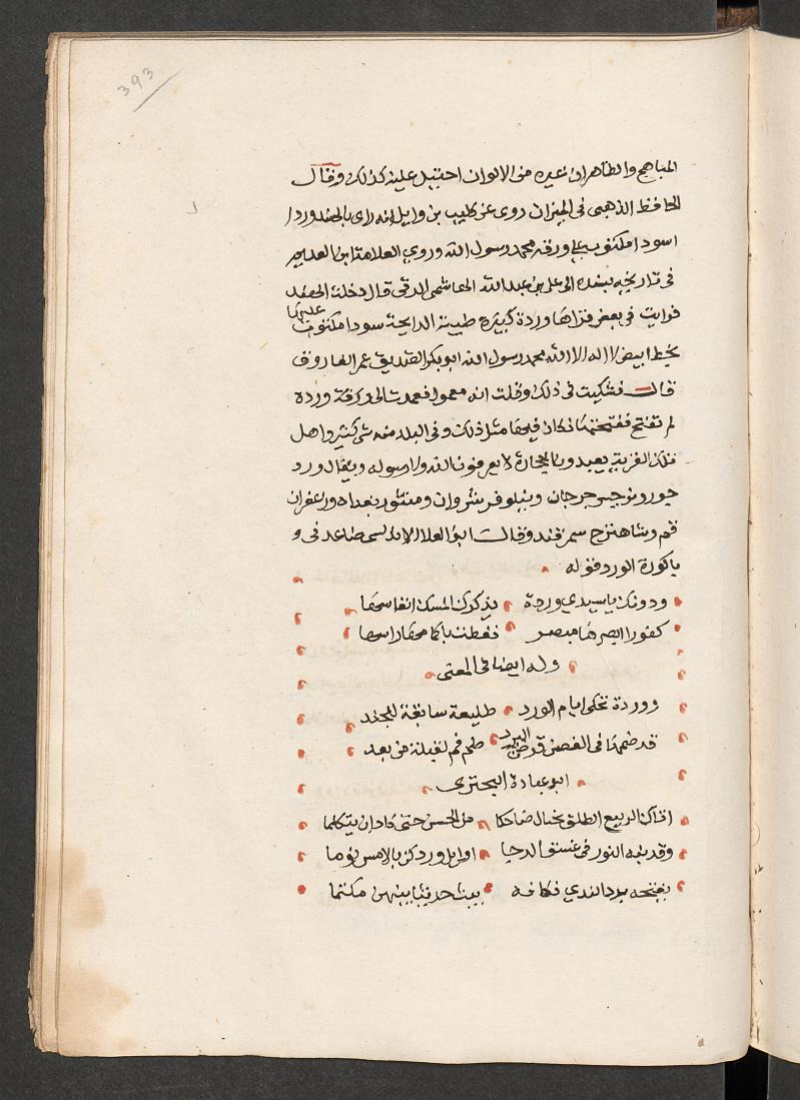 393
المباهج والظاهران غيره من الالوان احتيل عليه كذلك وقال
الحافظ الذهبى فى الميزان روى عن كليب بن وايل انه راى بالهند وردا
اسودا مكتوب على ورقه محمد رسول الله وروى العلامة ابن العديم
فى تاريخه بسنده الى على بن عبد الله الهاشمى الرقى قال دخلت الهند
فرايت فى بعض قراها وردة كبيرة طيبة الرايحة سودا مكتوب عليها
بخط ابيض لا اله الا الله محمد رسول الله ابو بكر الصديق عمر الفاروق
قال فشكيت فى ذلك وقلت انه معمول فعمدت الى وردة
لم تفتح ففتحتها فكان فيها مثل ذلك وفى البلد منه شى كثير واهل
تلك القرية يعبدون الحجارة لا يعرفون الله ولا رسوله ويقال ورد
جور ونرجس جرجان ونيلوفر شروان ومنثور بغداد وزعفران
قم وشاهنزج سمرقند وقال ابو العلا صاعد فى
باكورة الورد قوله
ودونك يا سيدى وردة يذكرك المسك انفاسها
كعذرا ابصرها مبصر فغطت باكمامها راسها
وله ايضا فى المعنى
ووردة تحكى امام الورد طليعة سابقة للجند
قد ضمها فى الغصن قرص البرد ضم فم لقبلة من بعد
ابو عبادة البحترى
اتاك الربيع الطلق يختال ضاحكا من الحسن حتى كاد ان يتكلما
وقد نبه النور فى غسق الدجا اوايل ورد كن بالامس نوما
يفتحه برد الندى فكانه يبث حديثا بينهن مكتما